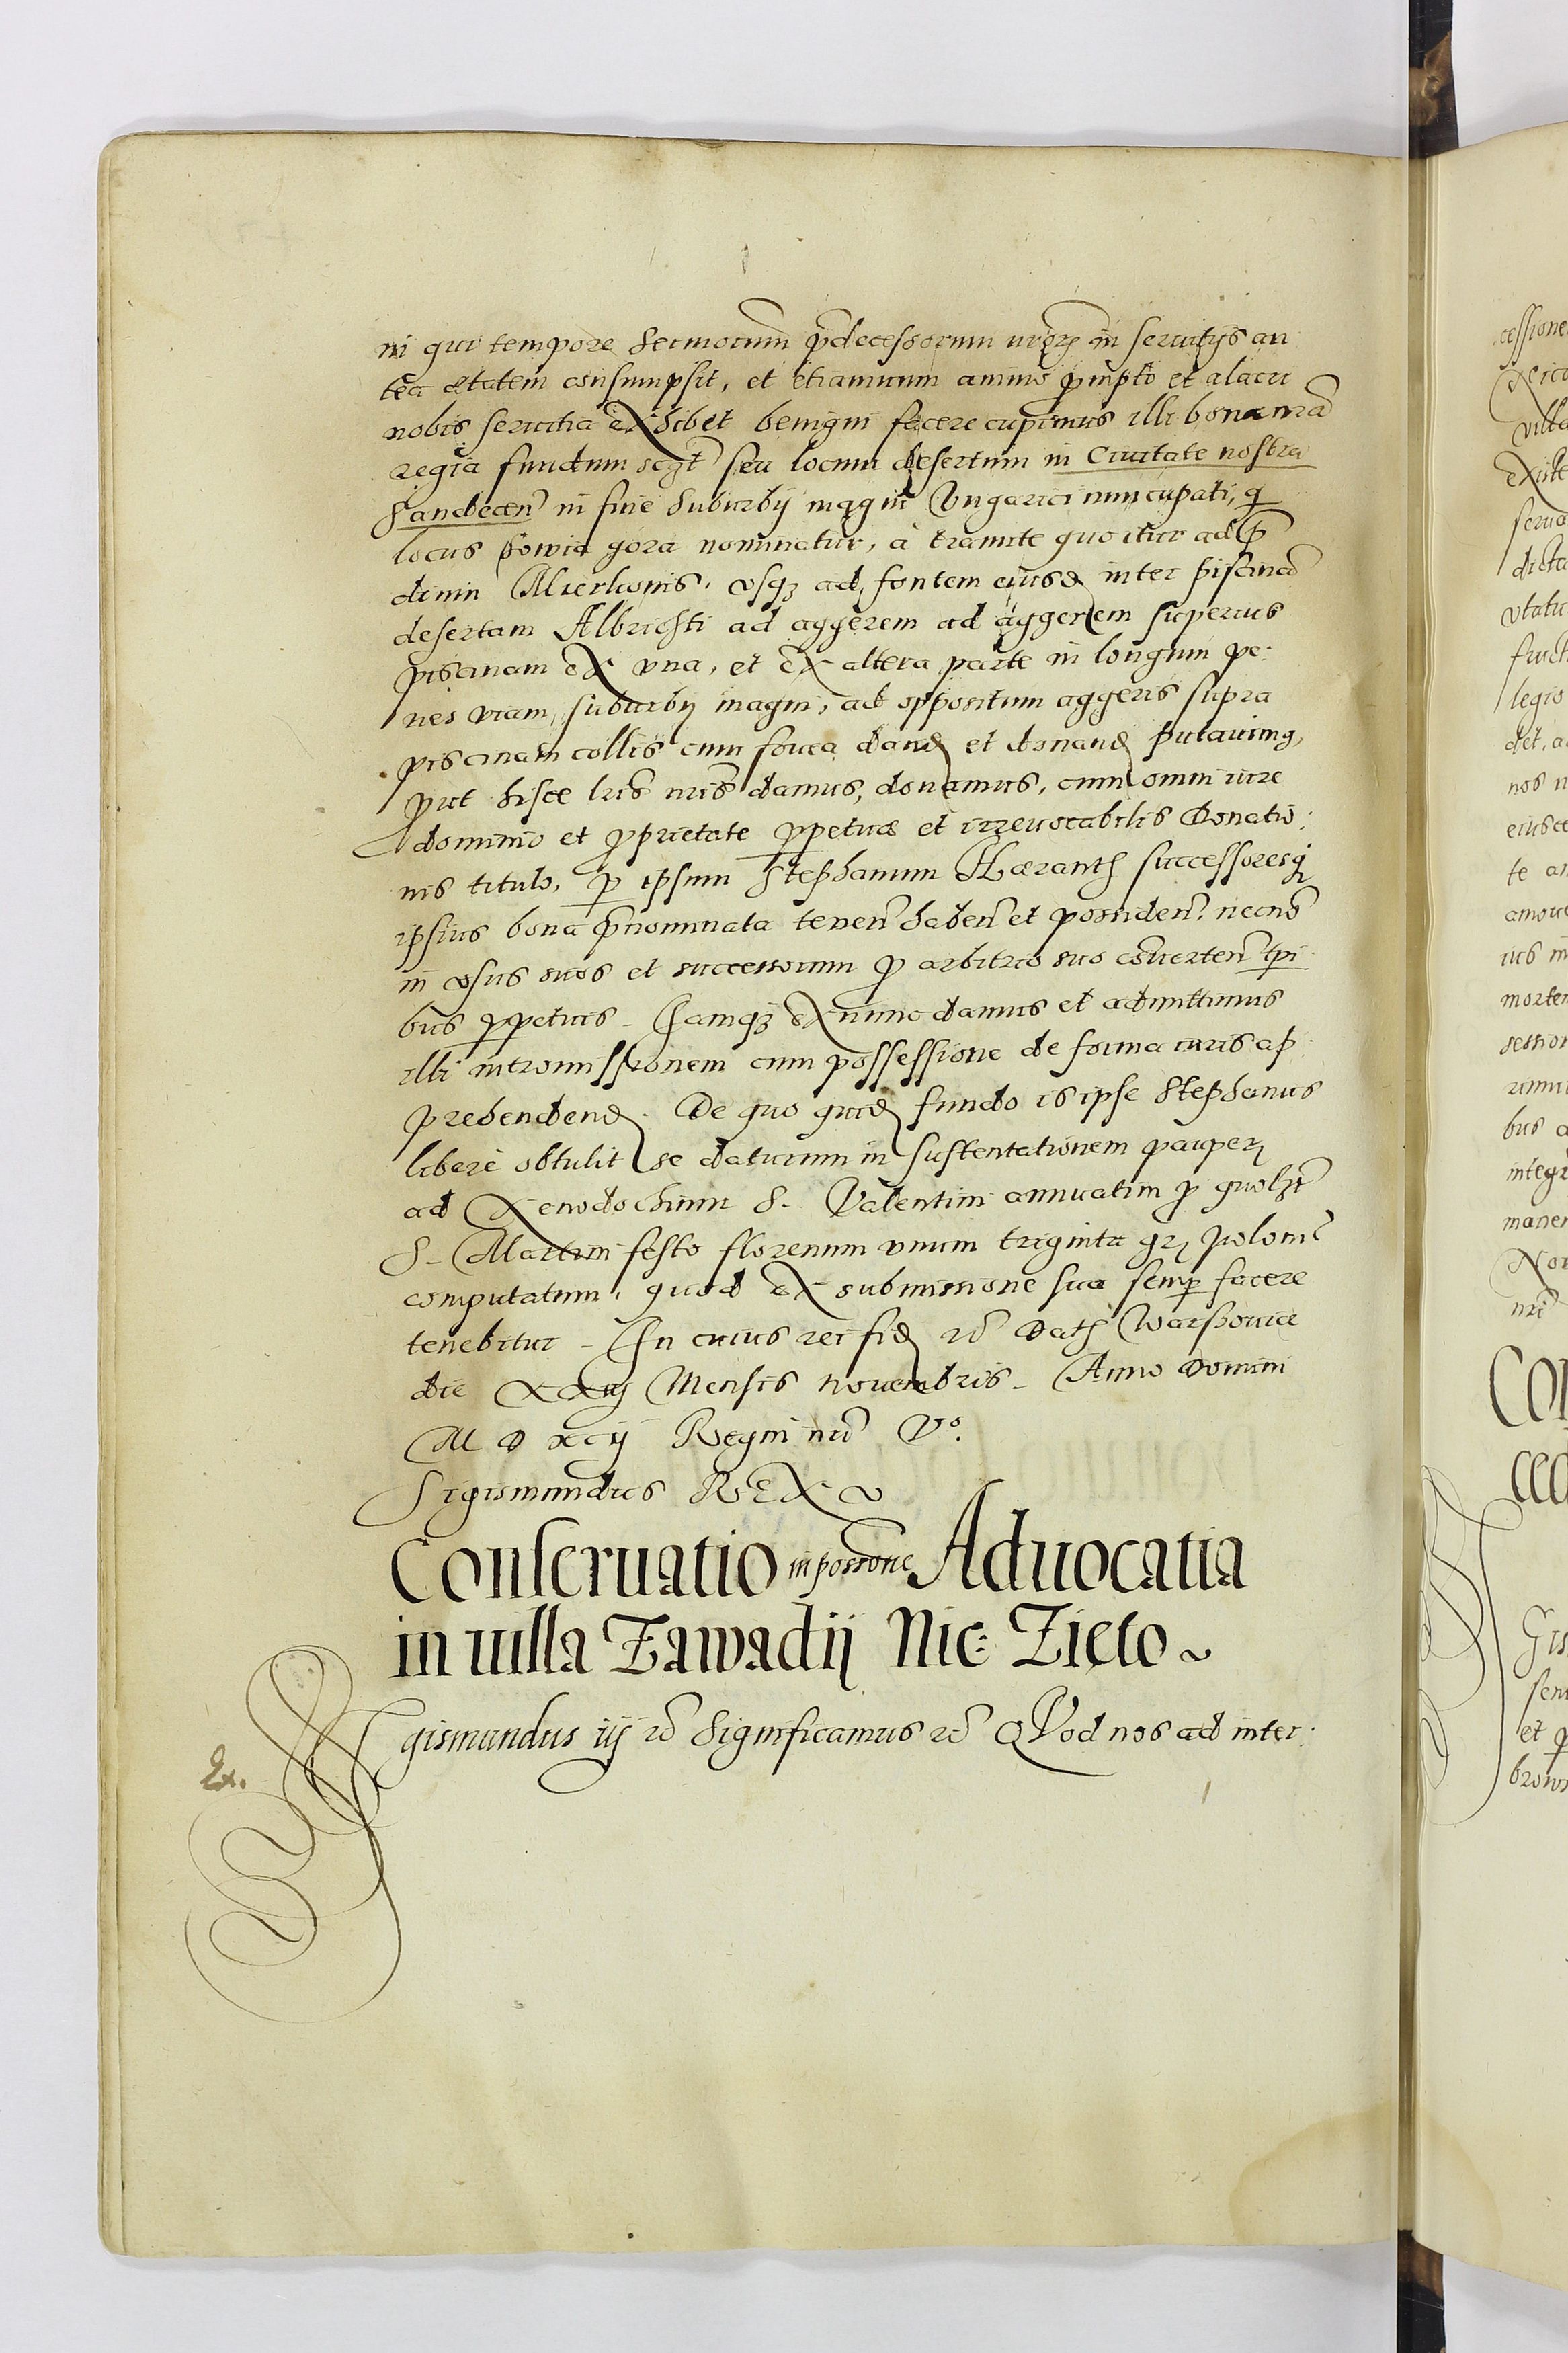 ni qui tempore Sermorum p̃decessorum nrorȝ in seruitijs an
tea ætatem consumpsit, et etiamnum animo prompto et alacri
nobis seruitia exhibet benigni facere cupimus illi bona nr̃a
regia fundum scz̃t seu locum desertum in Ciuitate nostra
Sandecen̄ in fine Suburbij magni Vngarici nuncupati, q̃
locus Sowia gora nominatur, à tramite quo itur ad p̃
dium Mierkonis, vsqȝ ad fontem eiusd̃ inter piscinã
desertam Albrichti ad aggerem ad aggerem superius
piscinam ex vna, et ex altera parte in longum pe:
nes viam suburbij magni, ad oppositum aggeris supra
piscinam collis cum fouea dand̃ et donand̃ putauimq,
prut hisce lris nris damus, donamus, cum omni iure
dominio et proprietate perpetuæ et irreuocabilis Donatio:
nis titulo, p ipsum Stephanum Haranth successoresq̃
ipsius bona p̃nominata tenen̄ haben̄ et possiden̄. necnõ
in vsus suos et successorum p arbitrio suo conuerten̄ tpi
bus ppetuis – Iamqȝ ex nunc damus et admittimus
illi intromissionem cum possessione de forma iuris ap
prehendend̃. De quo quid̃ fundo is ipse Stephanus
liberè obtulit se daturum in sustentationem pauperȝ
ad Xenodochium S. Valentini annuatim p quolzt̃
S. Martini festo florenum vnum triginta grȝ polon̄
computatum, quod ex submissione sua semp facere
tenebitur – In cuius rei fid̃ rc̃ Datȝ Warsouiæ
die xxiij Mensis Nouembris – Anno Domini
M D xcij Regni nrĩ Vº.
Sigismundus REX
Conseruatio in possone Aduocatia
in uilla Zawadij Nic: Zięto ~
Ex.
Sigismundus iij rc̃ Significamus rc̃ QVod nos ad inter: